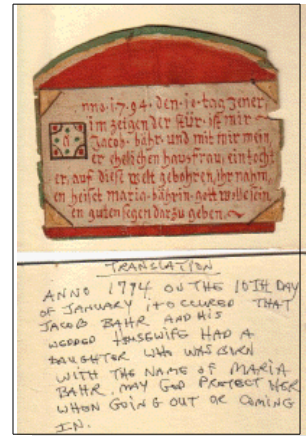 nno. 1.7.94. den. 10. tag Jener,
im zeigen der stür. ist mir
A Jacob. bähr. und mit mir mein,
er ehelichen hausfrau, ein tocht
er, auf diese welt gebohren, ihr nahm,
en heiset maria. bährin. gott wolle sein
en guten segen dar zu geben.
TRANSLATION
ANNO 1794 ON THE 10TH DAY
OF JANUARY, it OCCURED THAT
JACOB BAHR AND HIS
WEDDED HOUSEWIFE HAD A
DAUGHTER WHO WAS BORN
WITH THE NAME OF MARIA
BAHR. MAY GOD PROTECT HER
WHEN GOING OUT OR COMING
IN.